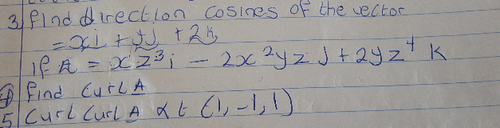 3, find direction cosines of the vector
= xi + yj + 2k
if A = xz³i - 2x²yz j + 2yz⁴ k
④ find Curl A
5 Curl Curl A at (1, -1, 1)